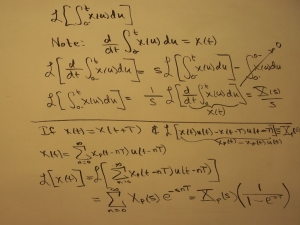 ℒ[∫₀ᵗ x(u)du]
Note: d/dt ∫₀ᵗ x(u)du = x(t)
ℒ[d/dt ∫₀ᵗ x(u)du] = s ℒ[∫₀ᵗ x(u)du] - ∫₀⁰⁻ x(u)du → 0
ℒ[∫₀ᵗ x(u)du] = 1/s ℒ[d/dt ∫₀ᵗ x(u)du] = X(s)/s
x(t)
If x(t) = x(t+T) & ℒ[x(t)u(t) - x(t-T)u(t-T)] = Xₚ(s)
xₚ(t) = xₚ(t)u(t)
x(t) = ∑ₙ₌₀^∞ xₚ(t-nT)u(t-nT)
ℒ[x(t)] = ℒ[∑ₙ₌₀^∞ xₚ(t-nT)u(t-nT)]
= ∑ₙ₌₀^∞ Xₚ(s) e^(-snT) = Xₚ(s) (1/(1-e^(-sT)))